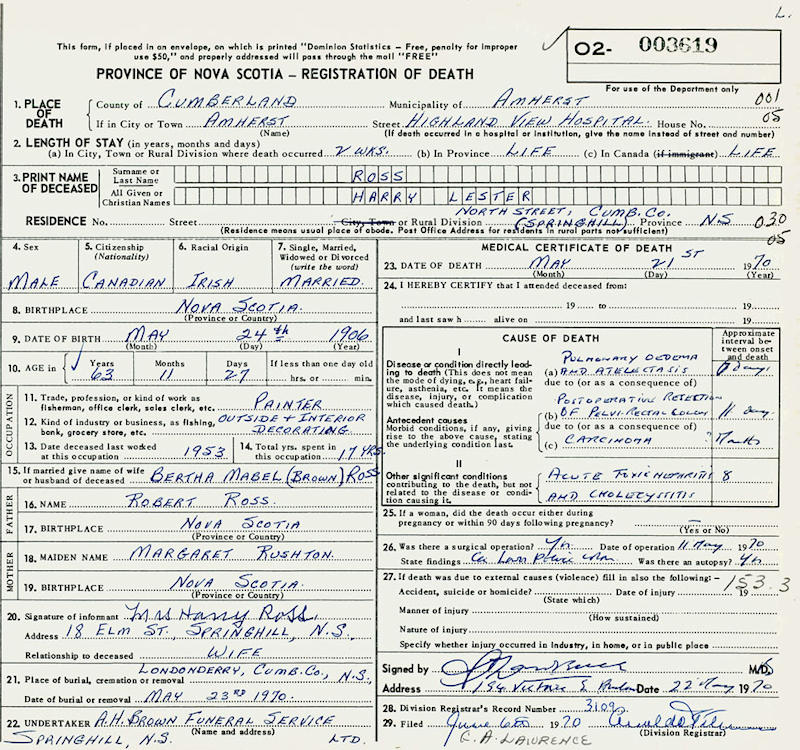 L.
This form, if placed in an envelope, on which is printed "Dominion Statistics – Free, penalty for improper
use $50," and properly addressed will pass through the mail "FREE"
PROVINCE OF NOVA SCOTIA – REGISTRATION OF DEATH
02- 003619
For use of the Department only
1. PLACE OF DEATH
County of CUMBERLAND Municipality of AMHERST 001
If in City or Town AMHERST Street HIGHLAND VIEW HOSPITAL. House No. 05
(Name) (If death occurred in a hospital or institution, give the name instead of street and number)
2. LENGTH OF STAY (in years, months and days)
(a) In City, Town or Rural Division where death occurred 2 WKS. (b) In Province LIFE (c) In Canada (if immigrant) LIFE
3. PRINT NAME OF DECEASED
Surname or Last Name ROSS
All Given or Christian Names HARRY LESTER
NORTH STREET, CUMB. CO.
RESIDENCE No. Street City, Town or Rural Division (SPRINGHILL) Province N.S 030
(Residence means usual place of abode. Post Office Address for residents in rural parts not sufficient) 05
4. Sex MALE
5. Citizenship (Nationality) CANADIAN
6. Racial Origin IRISH
7. Single, Married, Widowed or Divorced (write the word) MARRIED.
8. BIRTHPLACE NOVA SCOTIA.
(Province or Country)
9. DATE OF BIRTH MAY 24th 1906
(Month) (Day) (Year)
10. AGE in Years Months Days If less than one day old
63 11 27 hrs. or min.
OCCUPATION
11. Trade, profession, or kind of work as
fisherman, office clerk, sales clerk, etc. PAINTER
12. Kind of industry or business, as fishing, OUTSIDE + INTERIOR
bank, grocery store, etc. DECORATING.
13. Date deceased last worked at this occupation 1953
14. Total yrs. spent in this occupation 17 YRS.
15. If married give name of wife
or husband of deceased BERTHA MABEL (BROWN) ROSS
FATHER
16. NAME ROBERT ROSS.
17. BIRTHPLACE NOVA SCOTIA
(Province or Country)
MOTHER
18. MAIDEN NAME MARGARET RUSHTON.
19. BIRTHPLACE NOVA SCOTIA.
(Province or Country)
20. Signature of informant Mrs Harry Ross
Address 18 ELM ST., SPRINGHILL, N.S.,
Relationship to deceased WIFE
21. Place of burial, cremation or removal LONDONDERRY, CUMB. CO., N.S.
Date of burial or removal MAY 23RD 1970.
22. UNDERTAKER A.H. BROWN FUNERAL SERVICE
(Name and address)
SPRINGHILL, N.S. LTD.
MEDICAL CERTIFICATE OF DEATH
23. DATE OF DEATH MAY 21ST 1970
(Month) (Day) (Year)
24. I HEREBY CERTIFY that I attended deceased from:
19 to 19
and last saw h alive on 19
CAUSE OF DEATH
Approximate interval between onset and death
I
Disease or condition directly leading to death (This does not mean
the mode of dying, e.g., heart failure, asthenia, etc. It means the
disease, injury, or complication
which caused death.)
PULMONARY OEDEMA
(a) AND ATELECTASIS days
due to (or as a consequence of)
Antecedent causes
Morbid conditions, if any, giving
rise to the above cause, stating
the underlying condition last.
POSTOPERATIVE RESECTION
(b) OF PELVI-RECTAL COLON 11 days
due to (or as a consequence of)
(c) CARCINOMA Months
II
Other significant conditions
contributing to the death, but not
related to the disease or condition
causing it.
ACUTE TOXIC NEPHRITIS 8
AND CHOLECYSTITIS
25. If a woman, did the death occur either during
pregnancy or within 90 days following pregnancy? –
(Yes or No)
26. Was there a surgical operation? Yes Date of operation 11 May 1970
State findings Ca colon Was there an autopsy? Yes
27. If death was due to external causes (violence) fill in also the following: – 153.3
Accident, suicide or homicide? Date of injury 19
(State which)
Manner of injury
(How sustained)
Nature of injury
Specify whether injury occurred in industry, in home, or in public place
Signed by M.D.
Address Victoria Date 22 May 1970
28. Division Registrar's Record Number 3109
29. Filed June 1970
(Division Registrar)
C. A. LAWRENCE